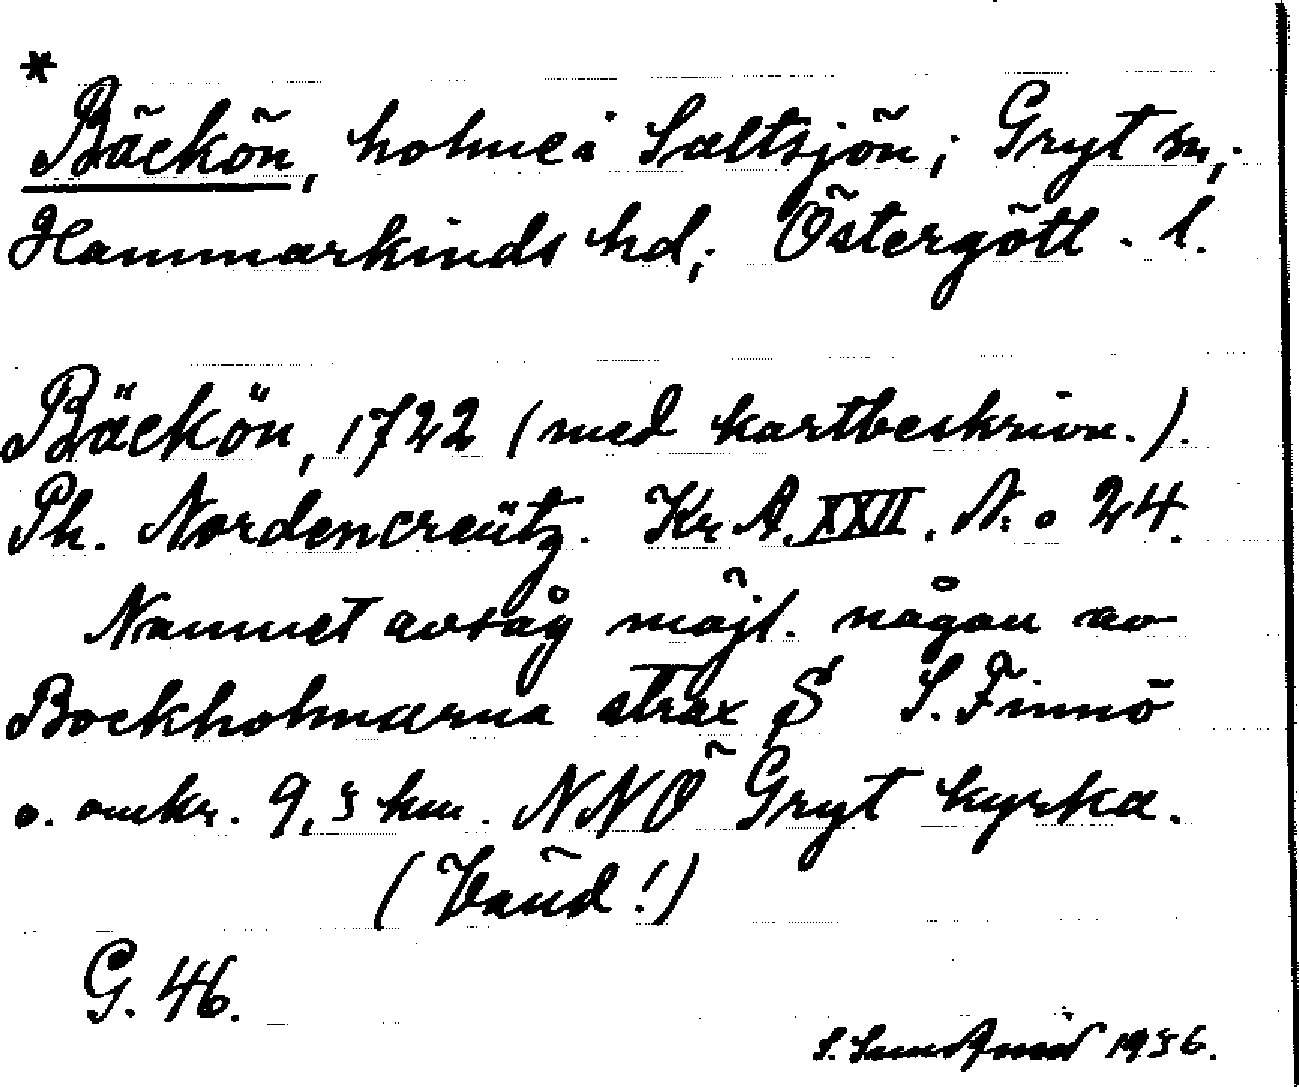 *
Bäckön, holme i Saltsjön; Gryt sn,
Hammarkinds hd, Östergötl. l.
Bäckön, 1722 (med kartbeskrivn.).
Ph. Nordencreütz. Kr. A. XXII. N:o 24.
Namnet avsåg möjl. någon av
Bockholmarna strax S S. Finnö
o. omkr. 9,5 km. NNO Gryt kyrka.
(Vänd!)
G. 46.
S. 1936.